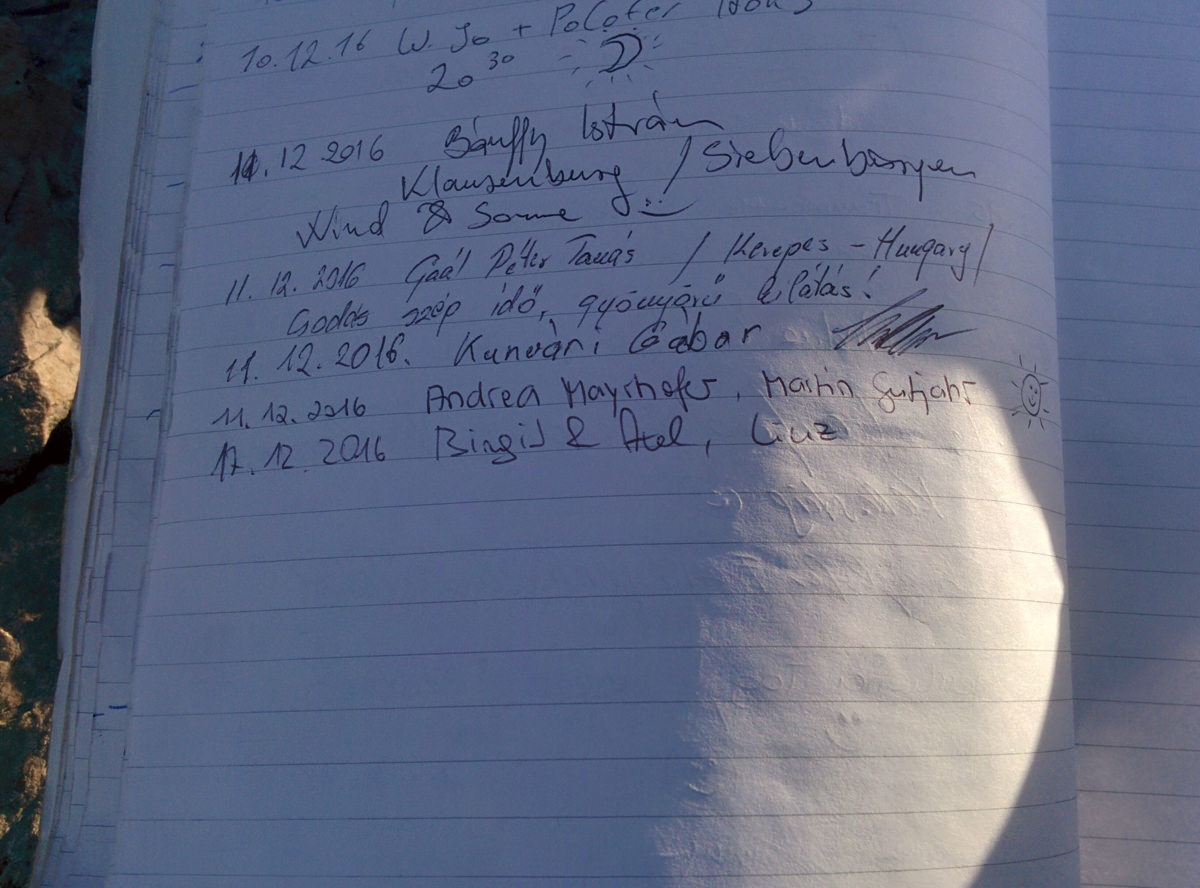 10.12.16 W. Jo +
20³⁰
11.12 2016 Bánffy István
Klausenburg / Siebenbürgen
Wind & Sonne
11.12.2016 Gaál Péter Tamás / Kerepes - Hungary /
szép idő, gyönyörű kilátás!
11.12.2016. Gábor
11.12.2016 Andrea Mayrhofer, Martin Gutjahr
17.12.2016 Birgit & Axel, Linz